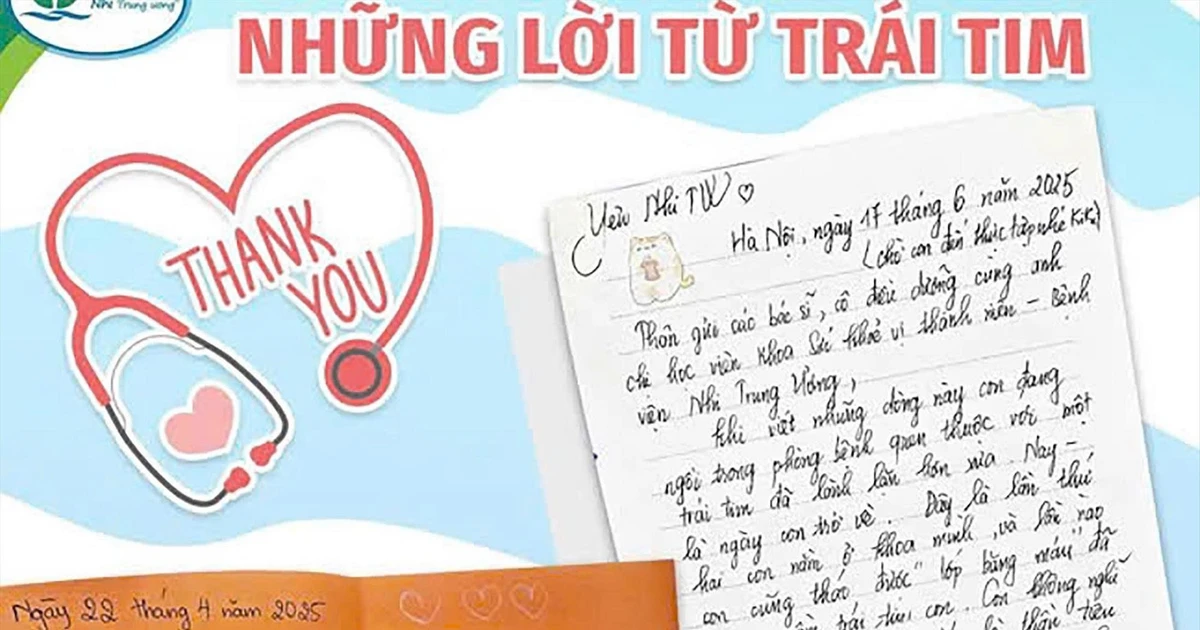 Nhi Trung ương
NHỮNG LỜI TỪ TRÁI TIM
THANK
YOU
Yêu Nhi TW ♡
Hà Nội, ngày 17 tháng 6 năm 2025
(chờ con đến thực tập nhé KiKi)
Thân gửi các bác sĩ, cô điều dưỡng cùng anh
chị học viên khoa Sức khoẻ vị thành niên - Bệnh
viện Nhi Trung Ương,
Khi viết những dòng này con đang
ngồi trong phòng bệnh quen thuộc với một
trái tim đã lành lặn hơn xưa. Nay -
là ngày con trở về. Đây là lần thứ
hai con nằm ở khoa mình, và lần nào
con cũng tháo được "lớp băng máu" đã
trái tim con. Con không nghĩ
là thần tiên
Ngày 22 tháng 4 năm 2025